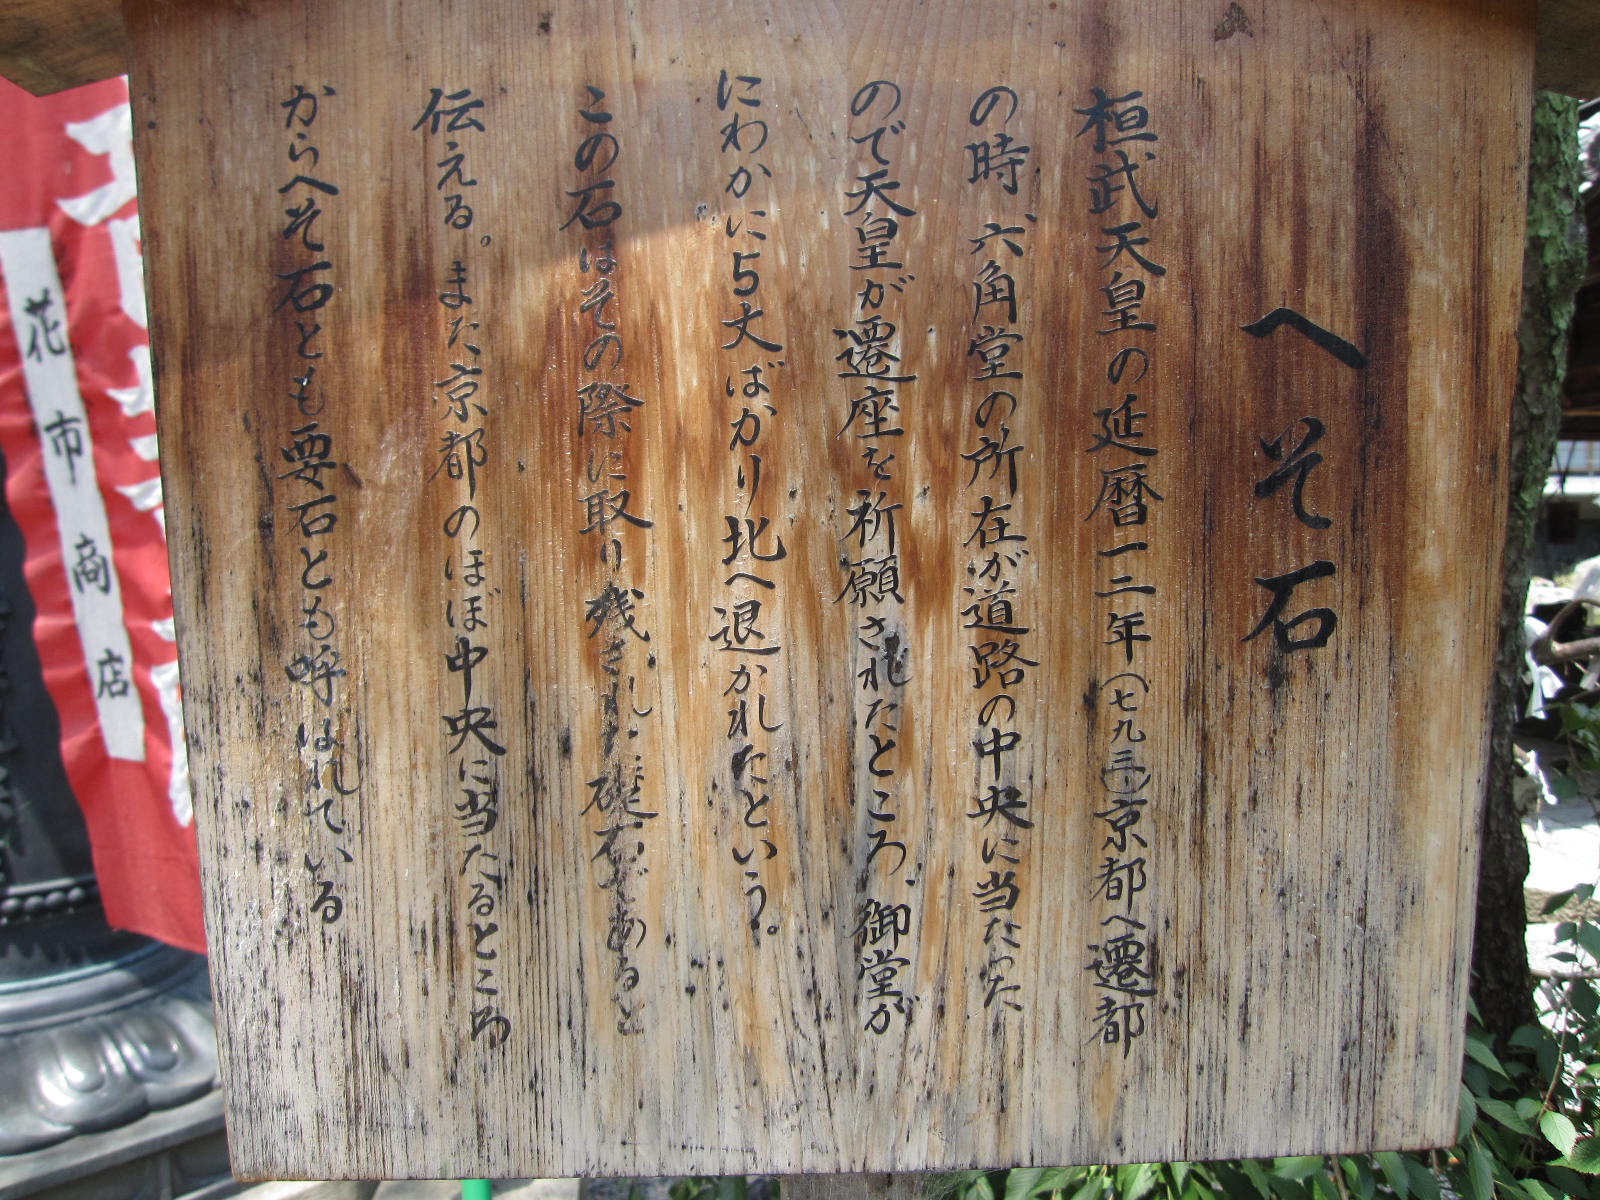 へそ石
桓武天皇の延暦一二年(七九三)京都へ遷都
の時、六角堂の所在が道路の中央に当たった
ので天皇が遷座を祈願されたところ、御堂が
にわかに5丈ばかり北へ退かれたという。
この石はその際に取り残された礎石であると
伝える。また京都のほぼ中央に当たるところ
からへそ石とも要石とも呼ばれている
花市商店